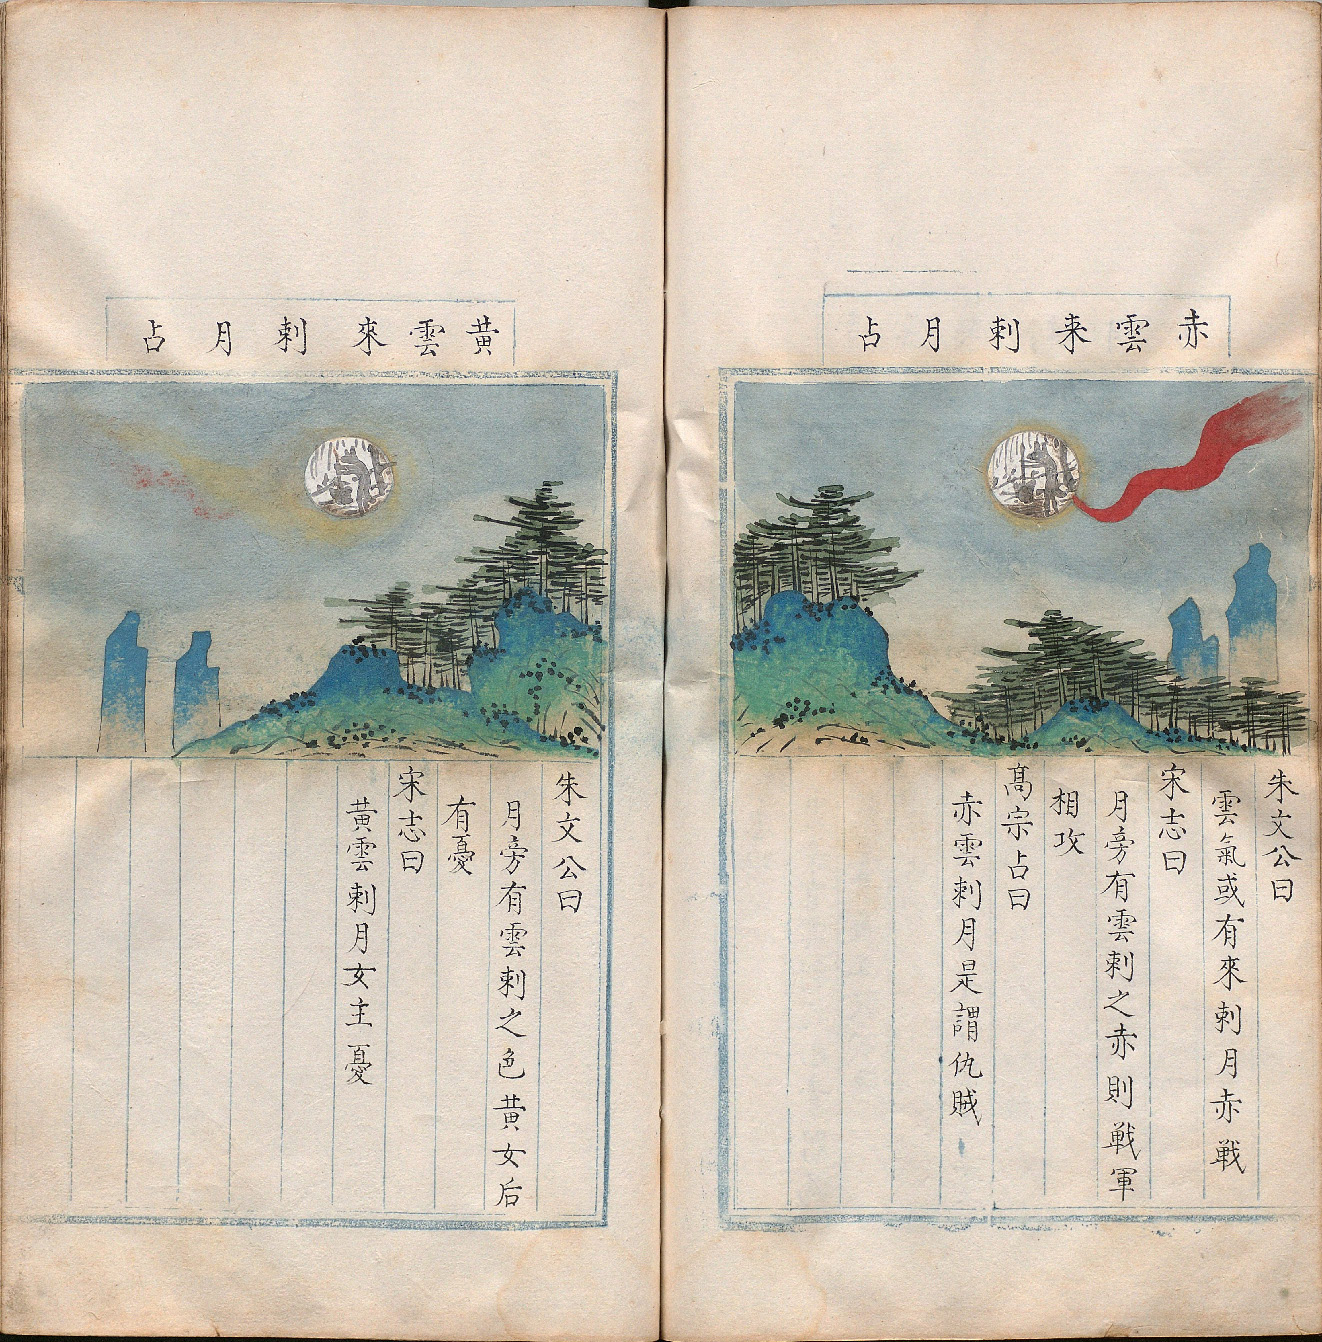 赤雲来刺月占
朱文公曰
雲氣或有來刺月赤戦
宋志曰
月旁有雲刺之赤則戦軍
相攻
髙宗占曰
赤雲刺月是謂仇賊
黃雲來刺月占
朱文公曰
月旁有雲刺之色黃女后
有憂
宋志曰
黃雲刺月女主憂